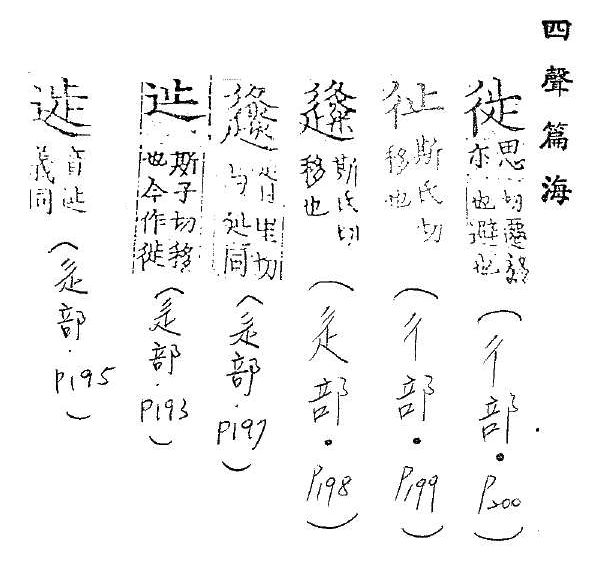 四聲篇海
徙
思切遷移
亦也避也
(彳部.P200)
𢓊
斯氏切
移也
(彳部.P199)
斯氏切
移也
(辵部.P198)
切
与同
(辵部.P197)
𨑭
斯子切移
也今作徙
(辵部.P193)
音
義同
(辵部.P195)